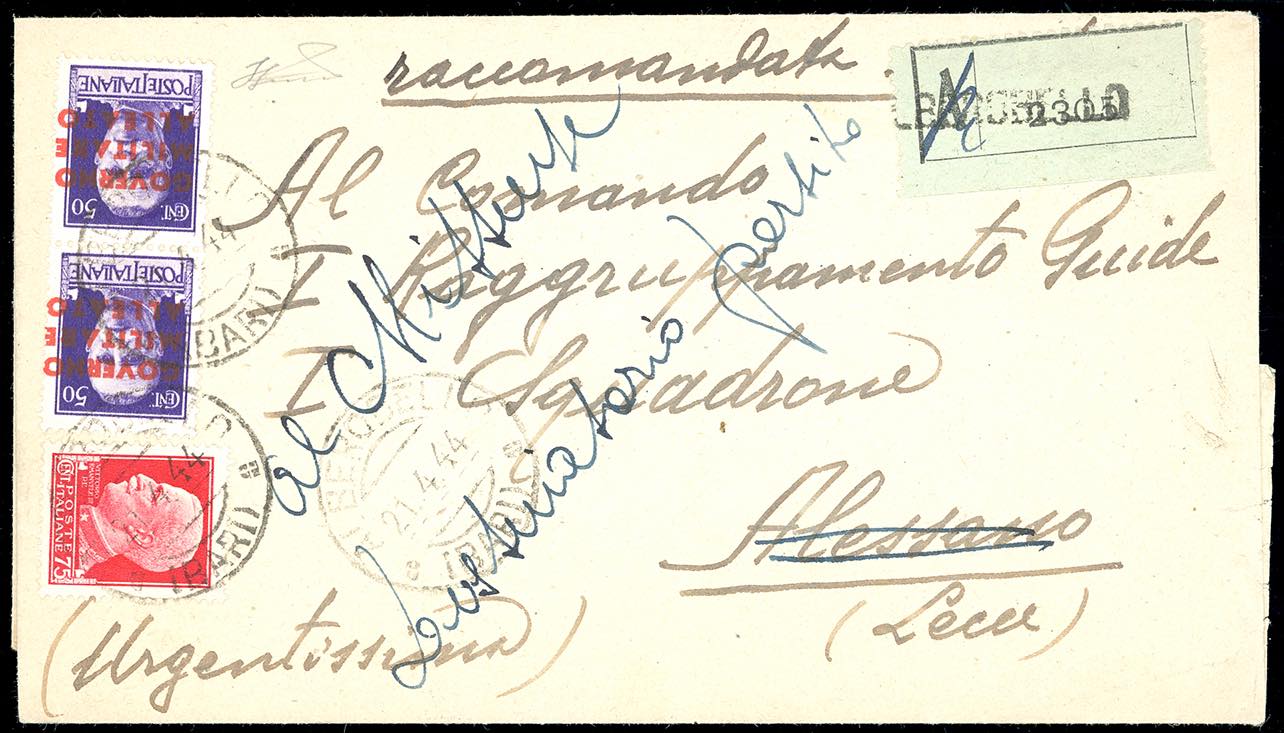 raccomandata.
ALBEROBELLO
2305
Al Comando
I Raggruppamento Guide
I Squadrone
Alessano
(Lecce)
(Urgentissima)
al Mittente
Destinatario partito
POSTE ITALIANE
CENT. 50
GOVERNO
MILITARE
ALLEATO
POSTE ITALIANE
CENT. 50
GOVERNO
MILITARE
ALLEATO
VITTORIO
EMANUELE III
RE
CENT. 75
POSTE
ITALIANE
(BARI)
44
(BARI)
21.4.44
(BARI)